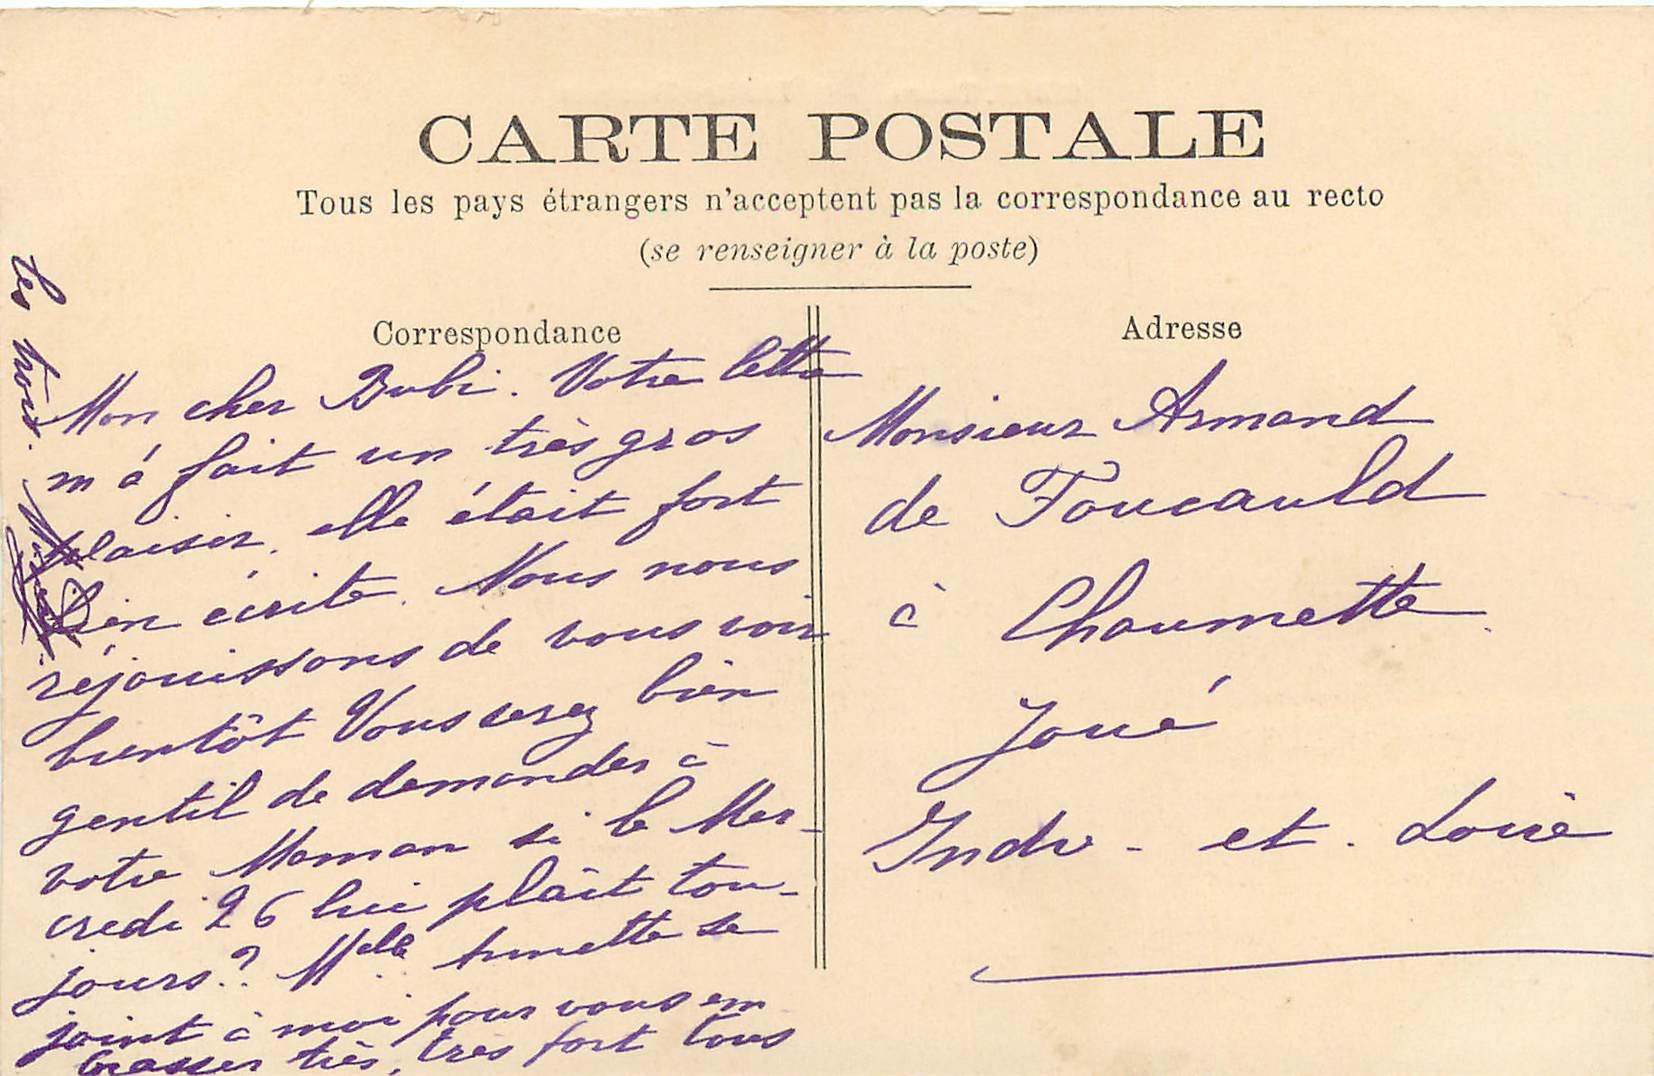 CARTE POSTALE
Tous les pays étrangers n'acceptent pas la correspondance au recto
(se renseigner à la poste)
Correspondance
Mon cher Bubi. Votre lettre
m'a fait un très gros
plaisir, elle était fort
bien écrite. Nous nous
réjouissons de vous voir
bientôt Vous serez bien
gentil de demander à
votre Maman si le Mer-
credi 26 lui plaît tou-
jours? Mlle se
joint à moi pour vous em
brasser très, très fort tous
les trois.
Adresse
Monsieur Armand
de Foucauld
à Chaumette
Joué
Indre-et-Loire